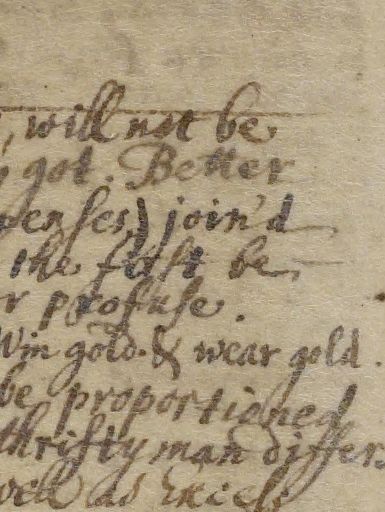 , will not be
got. Better
penses) join'd
the first be
r profuse.
Win gold & wear gold.
be proportioned
thrifty man differ.
well as Excess